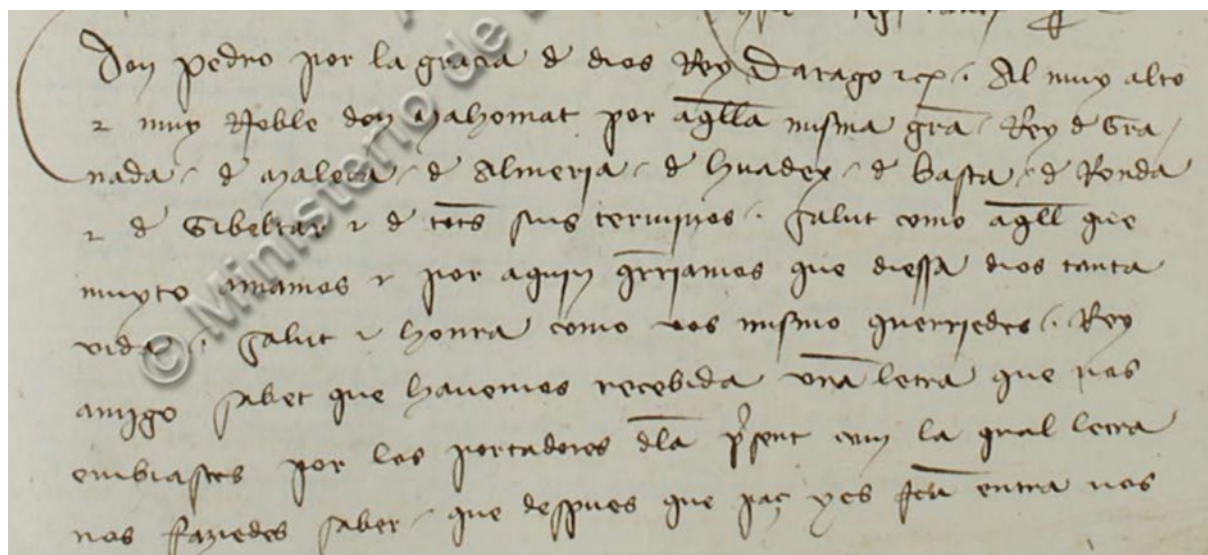 Don Pedro por la gracia de dios Rey Darago etc. Al muy alto
et muy Noble don Mahomat por aqlla misma gra Rey de Gra
nada / de Maleca / de Almeria / de Huadex / de Basta / de Ronda
et de Gibeltar et de tots sus terminos. Salut como aqll que
muyto amamos et por aquiy qrriamos que diessa dios tanta
vida. Salut et honra como vos mismo querriedes. Rey
amigo sabet que havemos recebida vra letra que nos
embiastes por los portadores dla psent con la qual letra
nos faziedes saber / que despues que paç yes fta entra nos
© Ministerio de